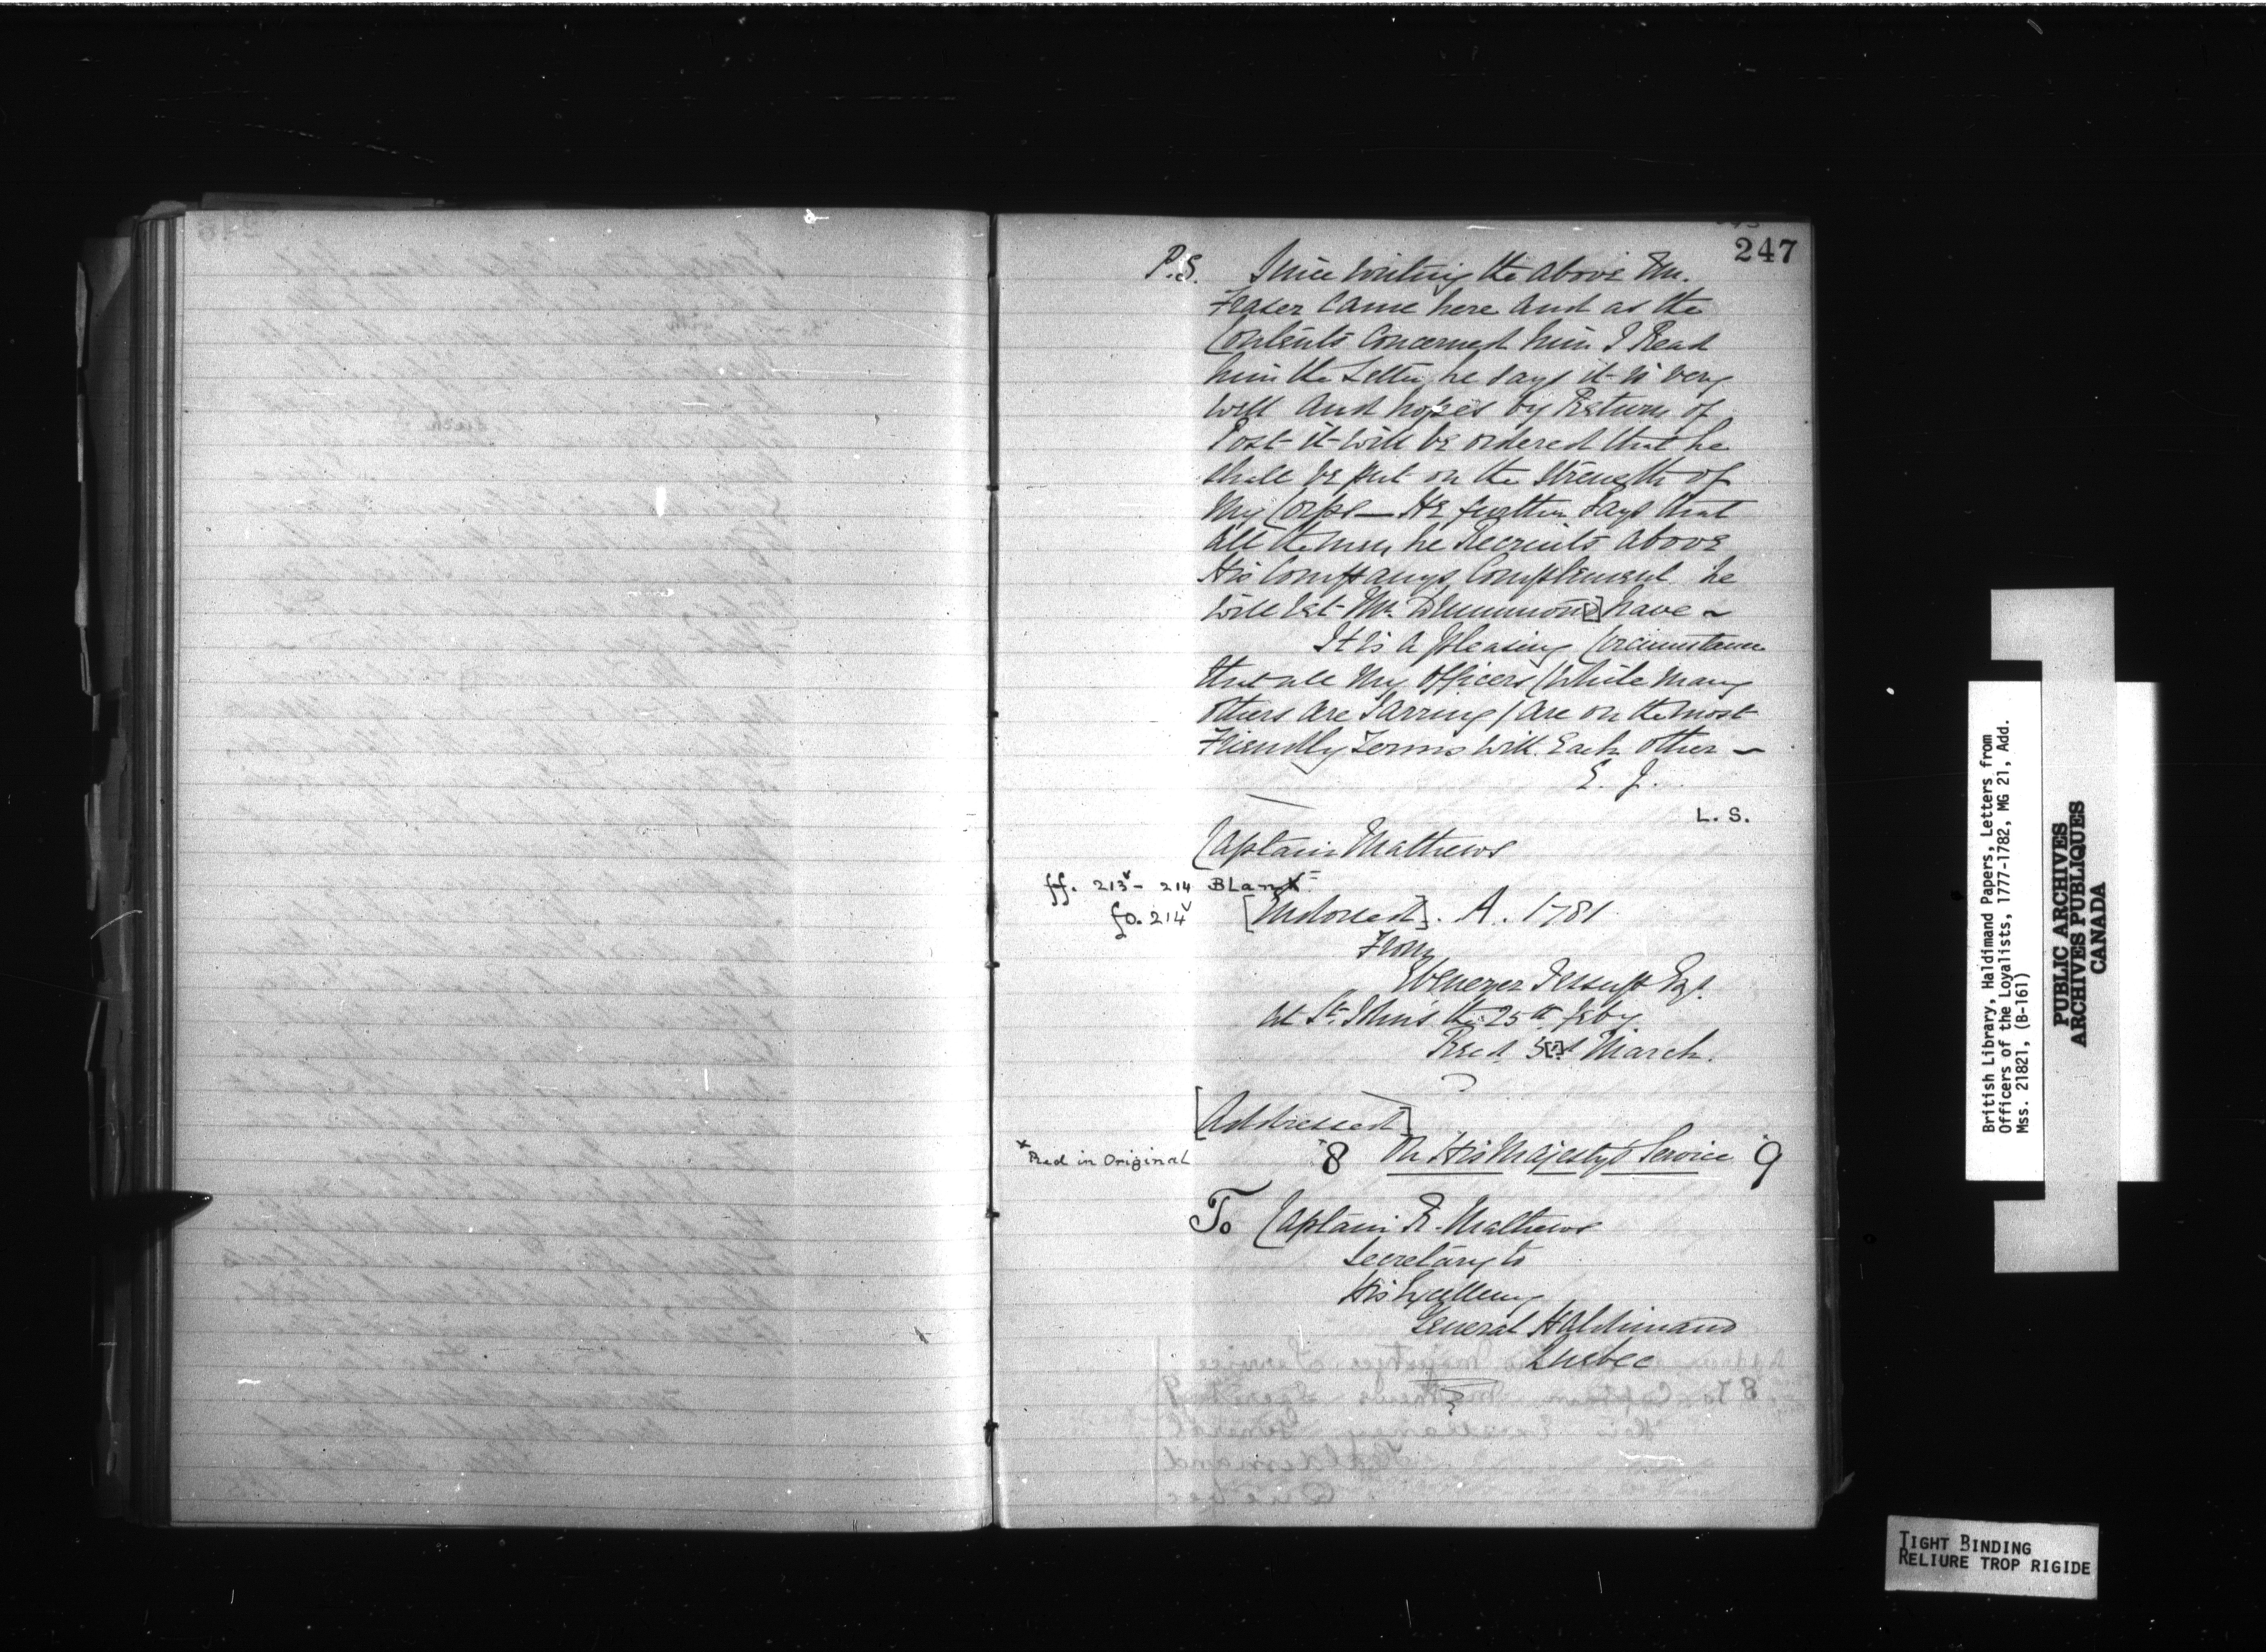 247
P.S. Since writing the above Mr.
Fraser Came here and as the
Contents Concerned him I Read
him the Letter, he says it is very
well and hopes by Return of
Post it will be ordered that he
shall be put on the Strength of
My Corps — He further says that
all the men he Recruits above
His Companys Complement he
will let Mr. Drummon[d] have ~
It is a pleasing Corcimstance
that all My Officers (while many
others are Jarring) are on the most
Friendly Terms with Each other —
E. J.
L. S.
Captain Mathews
ff. 213v - 214 Blank
fo. 214v [Endorsed]. A. 1781
From
Ebenezer Jessup Esqr.
at St. Johns the 25th Feby
Recd March.
[Addressed]
x Red in Original
x8 On His Majesty's Service 9
To Captain R. Mathews
Secretary to
His Excellency
General Haldimand
Quebec
British Library, Haldimand Papers, Letters from
Officers of the Loyalists, 1777-1782, MG 21, Add.
Mss. 21821, (B-161)
PUBLIC ARCHIVES
ARCHIVES PUBLIQUES
CANADA
TIGHT BINDING
RELIURE TROP RIGIDE